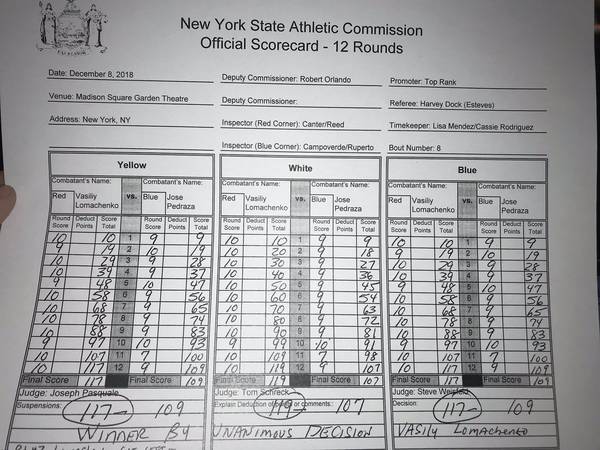 EXCELSIOR
New York State Athletic Commission
Official Scorecard - 12 Rounds
Date: December 8, 2018 Deputy Commissioner: Robert Orlando Promoter: Top Rank
Venue: Madison Square Garden Theatre Deputy Commissioner: Referee: Harvey Dock (Esteves)
Address: New York, NY Inspector (Red Corner): Canter/Reed Timekeeper: Lisa Mendez/Cassie Rodriguez
Inspector (Blue Corner): Campoverde/Ruperto Bout Number: 8
Yellow White Blue
Combatant's Name: Combatant's Name: Combatant's Name: Combatant's Name: Combatant's Name: Combatant's Name:
Red Vasiliy Lomachenko vs. Blue Jose Pedraza Red Vasiliy Lomachenko vs. Blue Jose Pedraza Red Vasiliy Lomachenko vs. Blue Jose Pedraza
Round Score Deduct Points Score Total Round Score Deduct Points Score Total Round Score Deduct Points Score Total Round Score Deduct Points Score Total Round Score Deduct Points Score Total Round Score Deduct Points Score Total
10 10 1 9 9 10 10 1 9 9 10 10 1 9 9
9 19 2 10 19 10 20 2 9 18 9 19 2 10 19
10 29 3 9 28 10 30 3 9 27 10 29 3 9 28
10 39 4 9 37 10 40 4 9 36 10 39 4 9 37
9 48 5 10 47 10 50 5 9 45 9 48 5 10 47
10 58 6 9 56 10 60 6 9 54 10 58 6 9 56
10 68 7 9 65 10 70 7 9 63 10 68 7 9 65
10 78 8 9 74 10 80 8 9 72 10 78 8 9 74
10 88 9 9 83 10 90 9 9 81 10 88 9 9 83
9 97 10 10 93 9 99 10 10 91 9 97 10 10 93
10 107 11 7 100 10 109 11 7 98 10 107 11 7 100
10 117 12 9 109 10 119 12 9 107 10 117 12 9 109
Final Score 117 Final Score 109 Final Score 119 Final Score 107 Final Score 117 Final Score 109
Judge: Joseph Pasquale Judge: Tom Schreck Judge: Steve Weisfeld
Suspensions: 117- 109 Explain Deduction of points or comments: 119- 107 Decision: 117- 109
WINNER BY UNANIMOUS DECISION VASILY LOMACHENKO